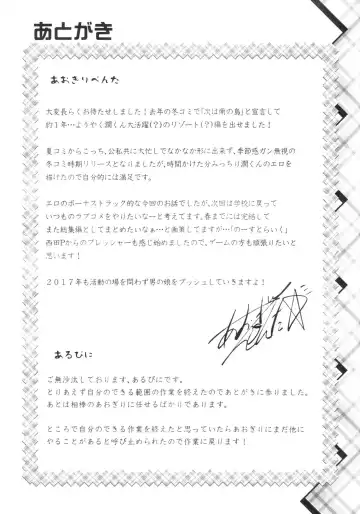 あとがき
あおきりぺんた
大変長らくお待たせしました!去年の冬コミで「次は南の島」と宣言して
約1年…ようやく潤くん大活躍(?)のリゾート(?)編を出せました!
夏コミからこっち、公私共に大忙しでなかなか形に出来ず、季節感ガン無視の
冬コミ時期リリースとなりましたが、時間かけた分みっちり潤くんのエロを
描けたので自分的には満足です。
エロのボーナストラック的な今回のお話でしたが、次回は学校に戻って
いつものラブコメをやりたいなーと考えてます。春までには完結して
また総集編としてまとめたいなぁ…と画策してますが…「のーすとらいく」
西田Pからのプレッシャーも感じ始めましたので、ゲームの方も頑張りたいと
思います!
2017年も活動の場を問わず男の娘をプッシュしていきますよ!
あるぴに
ご無沙汰しております、あるぴにです。
とりあえず自分のできる範囲の作業を終えたのであとがきに参りました。
あとは相棒のあおぎりに任せるばかりであります。
ところで自分のできる作業を終えたと思っていたらあおぎりにまだ他に
やることがあると呼び止められたので作業に戻ります!